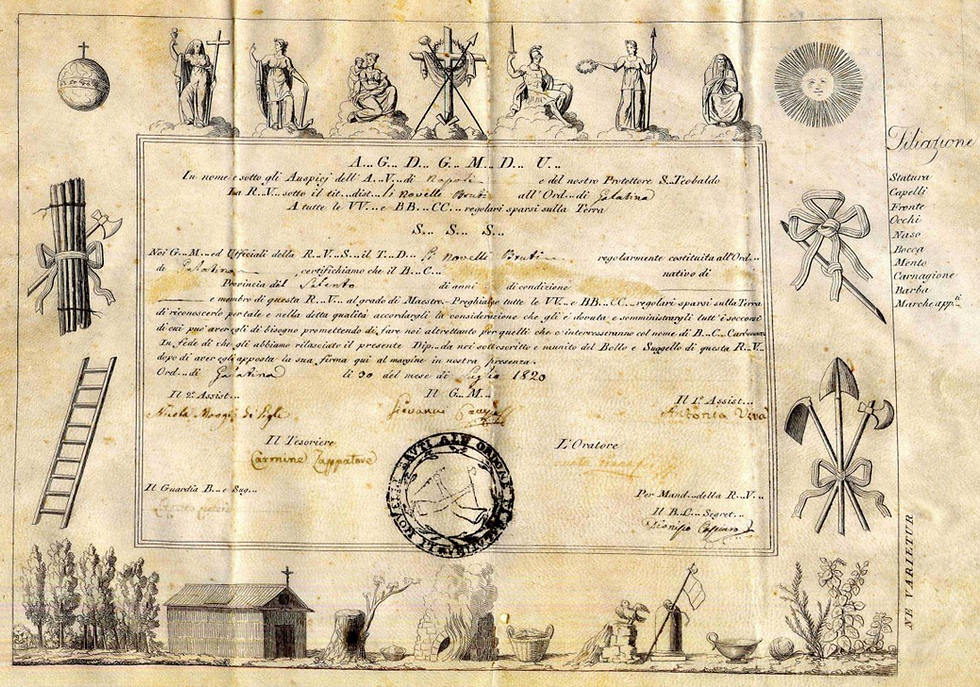 A... G... D... G... M... D... U...
In nome e sotto gli Auspicj dell'A...V... di Napoli e del nostro Protettore S... Teobaldo
La R...V... sotto il tit... dist... Li Novelle Bruti all'Ord... di Galatina
A tutte le VV... e BB...CC... regolari sparsi sulla Terra
S... S... S...
Noi G...M... ed Ufficiali della R...V...S... il T...D... Li Novelli Bruti regolarmente costituita all'Ord...
di Galatina certifichiamo che il B...C... nativo di
Provincia di Salento di anni di condizione
e membro di questa R...V... al grado di Maestro. Preghiamo tutte le VV... e BB...CC... regolari sparsi sulla Terra
di riconoscerlo per tale e nella detta qualità accordargli la considerazione che gli è dovuta e somministrargli tutt'i soccorsi
di cui può aver egli di bisogno promettendo di fare noi altrettanto per quelli che c'interesseranno col nome di B...C... Carbonaro
In fede di che gli abbiamo rilasciato il presente Dip... da noi sottoscritto e munito del Bollo e Suggello di questa R...V...
dopo di aver egli apposta la sua firma qui al margine in nostra presenza.
Ord... di Galatina li 30 del mese di Luglio 1820
Il 2º Assist... Il G...M... Il 1º Assist...
Giovanni Antonio Viva
Il Tesoriere L'Oratore
Carmine Zappatore
Il Guardia B... e Sug... Per Mand... della R...V...
Il B...C... Segret...
Filiazione
Statura
Capelli
Fronte
Occhi
Naso
Bocca
Mento
Carnagione
Barba
Marche app.ti
NE VARIETUR